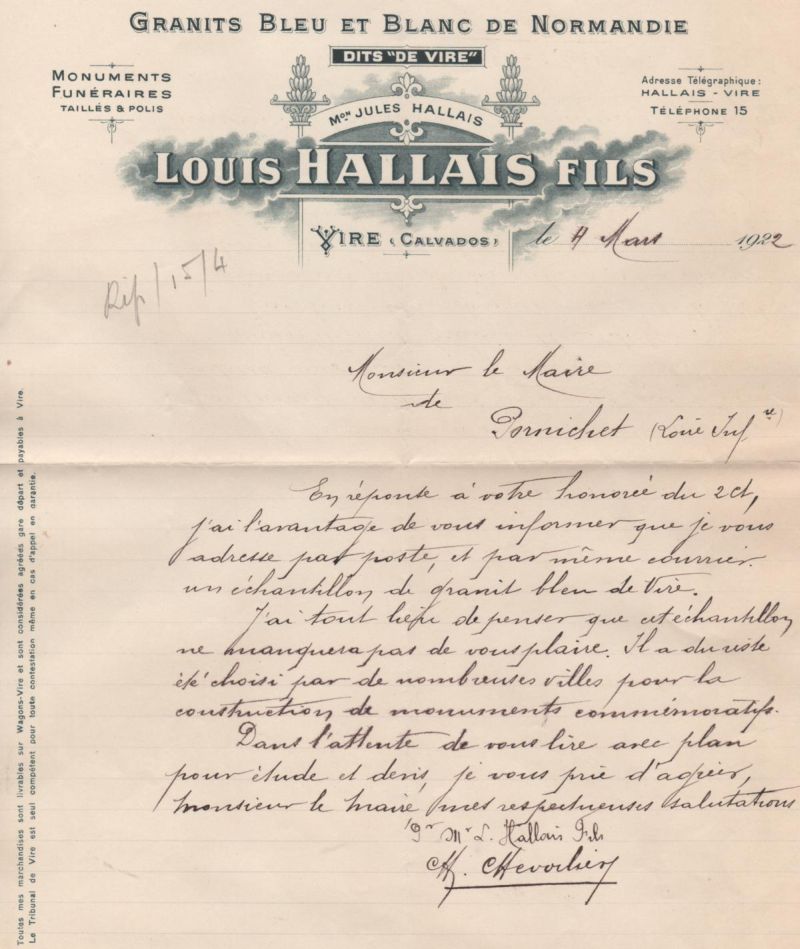 GRANITS BLEU ET BLANC DE NORMANDIE
DITS "DE VIRE"
MONUMENTS
FUNÉRAIRES
TAILLÉS & POLIS
Mon JULES HALLAIS
Adresse Télégraphique:
HALLAIS - VIRE
TÉLÉPHONE 15
LOUIS HALLAIS FILS
VIRE (CALVADOS), le 4 Mars 1922
Rép/15/4
Monsieur le Maire
de
Pornichet (Loire Infre)
En réponse à votre honorée du 2 ct,
j'ai l'avantage de vous informer que je vous
adresse par poste, et par même courrier
un échantillon de granit bleu de Vire.
J'ai tout lieu de penser que cet échantillon
ne manquera pas de vous plaire. Il a du reste
été choisi par de nombreuses villes pour la
construction de monuments commémoratifs.
Dans l'attente de vous lire avec plan
pour étude et devis, je vous prie d'agréer,
monsieur le maire mes respectueuses salutations
Pr Mr L. Hallais Fils
Toutes mes marchandises sont livrables sur Wagons-Vire et sont considérées agréées gare départ et payables à Vire.
Le Tribunal de Vire est seul compétent pour toute contestation même en cas d'appel en garantie.